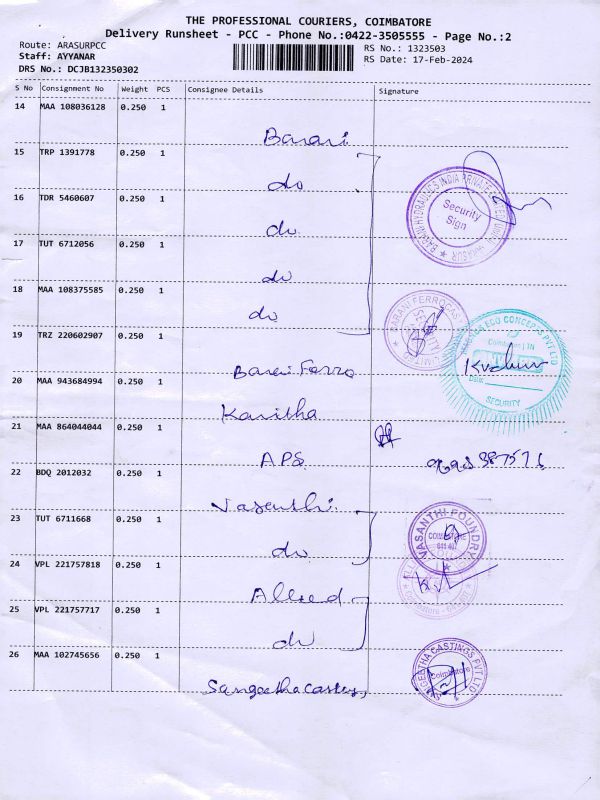 THE PROFESSIONAL COURIERS, COIMBATORE
Delivery Runsheet - PCC - Phone No.:0422-3505555 - Page No.:2
Route: ARASURPCC
RS No.: 1323503
Staff: AYYANAR
RS Date: 17-Feb-2024
DRS No.: DCJB132350302
S No Consignment No Weight PCS Consignee Details Signature
14 MAA 108036128 0.250 1
Barani
15 TRP 1391778 0.250 1
do
16 TDR 5460607 0.250 1
do
17 TUT 6712056 0.250 1
do
18 MAA 108375585 0.250 1
do
19 TRZ 220602907 0.250 1
Barani Ferro
20 MAA 943684994 0.250 1
Kavitha
21 MAA 864044044 0.250 1
APS
22 BDQ 2012032 0.250 1
Vasenthi
23 TUT 6711668 0.250 1
do
24 VPL 221757818 0.250 1
Allied
25 VPL 221757717 0.250 1
do
26 MAA 102745656 0.250 1
Sangeetha
BARANI HYDRAULICS INDIA PRIVATE LIMITED
Security
Sign
BARANI FERROCAST
ECO CONCEPTS PVT LTD
Coimbatore
Date
SECURITY
VASANTHI FOUNDRY
COIMBATORE
SANGEETHA CASTINGS PVT LTD
Coimbatore